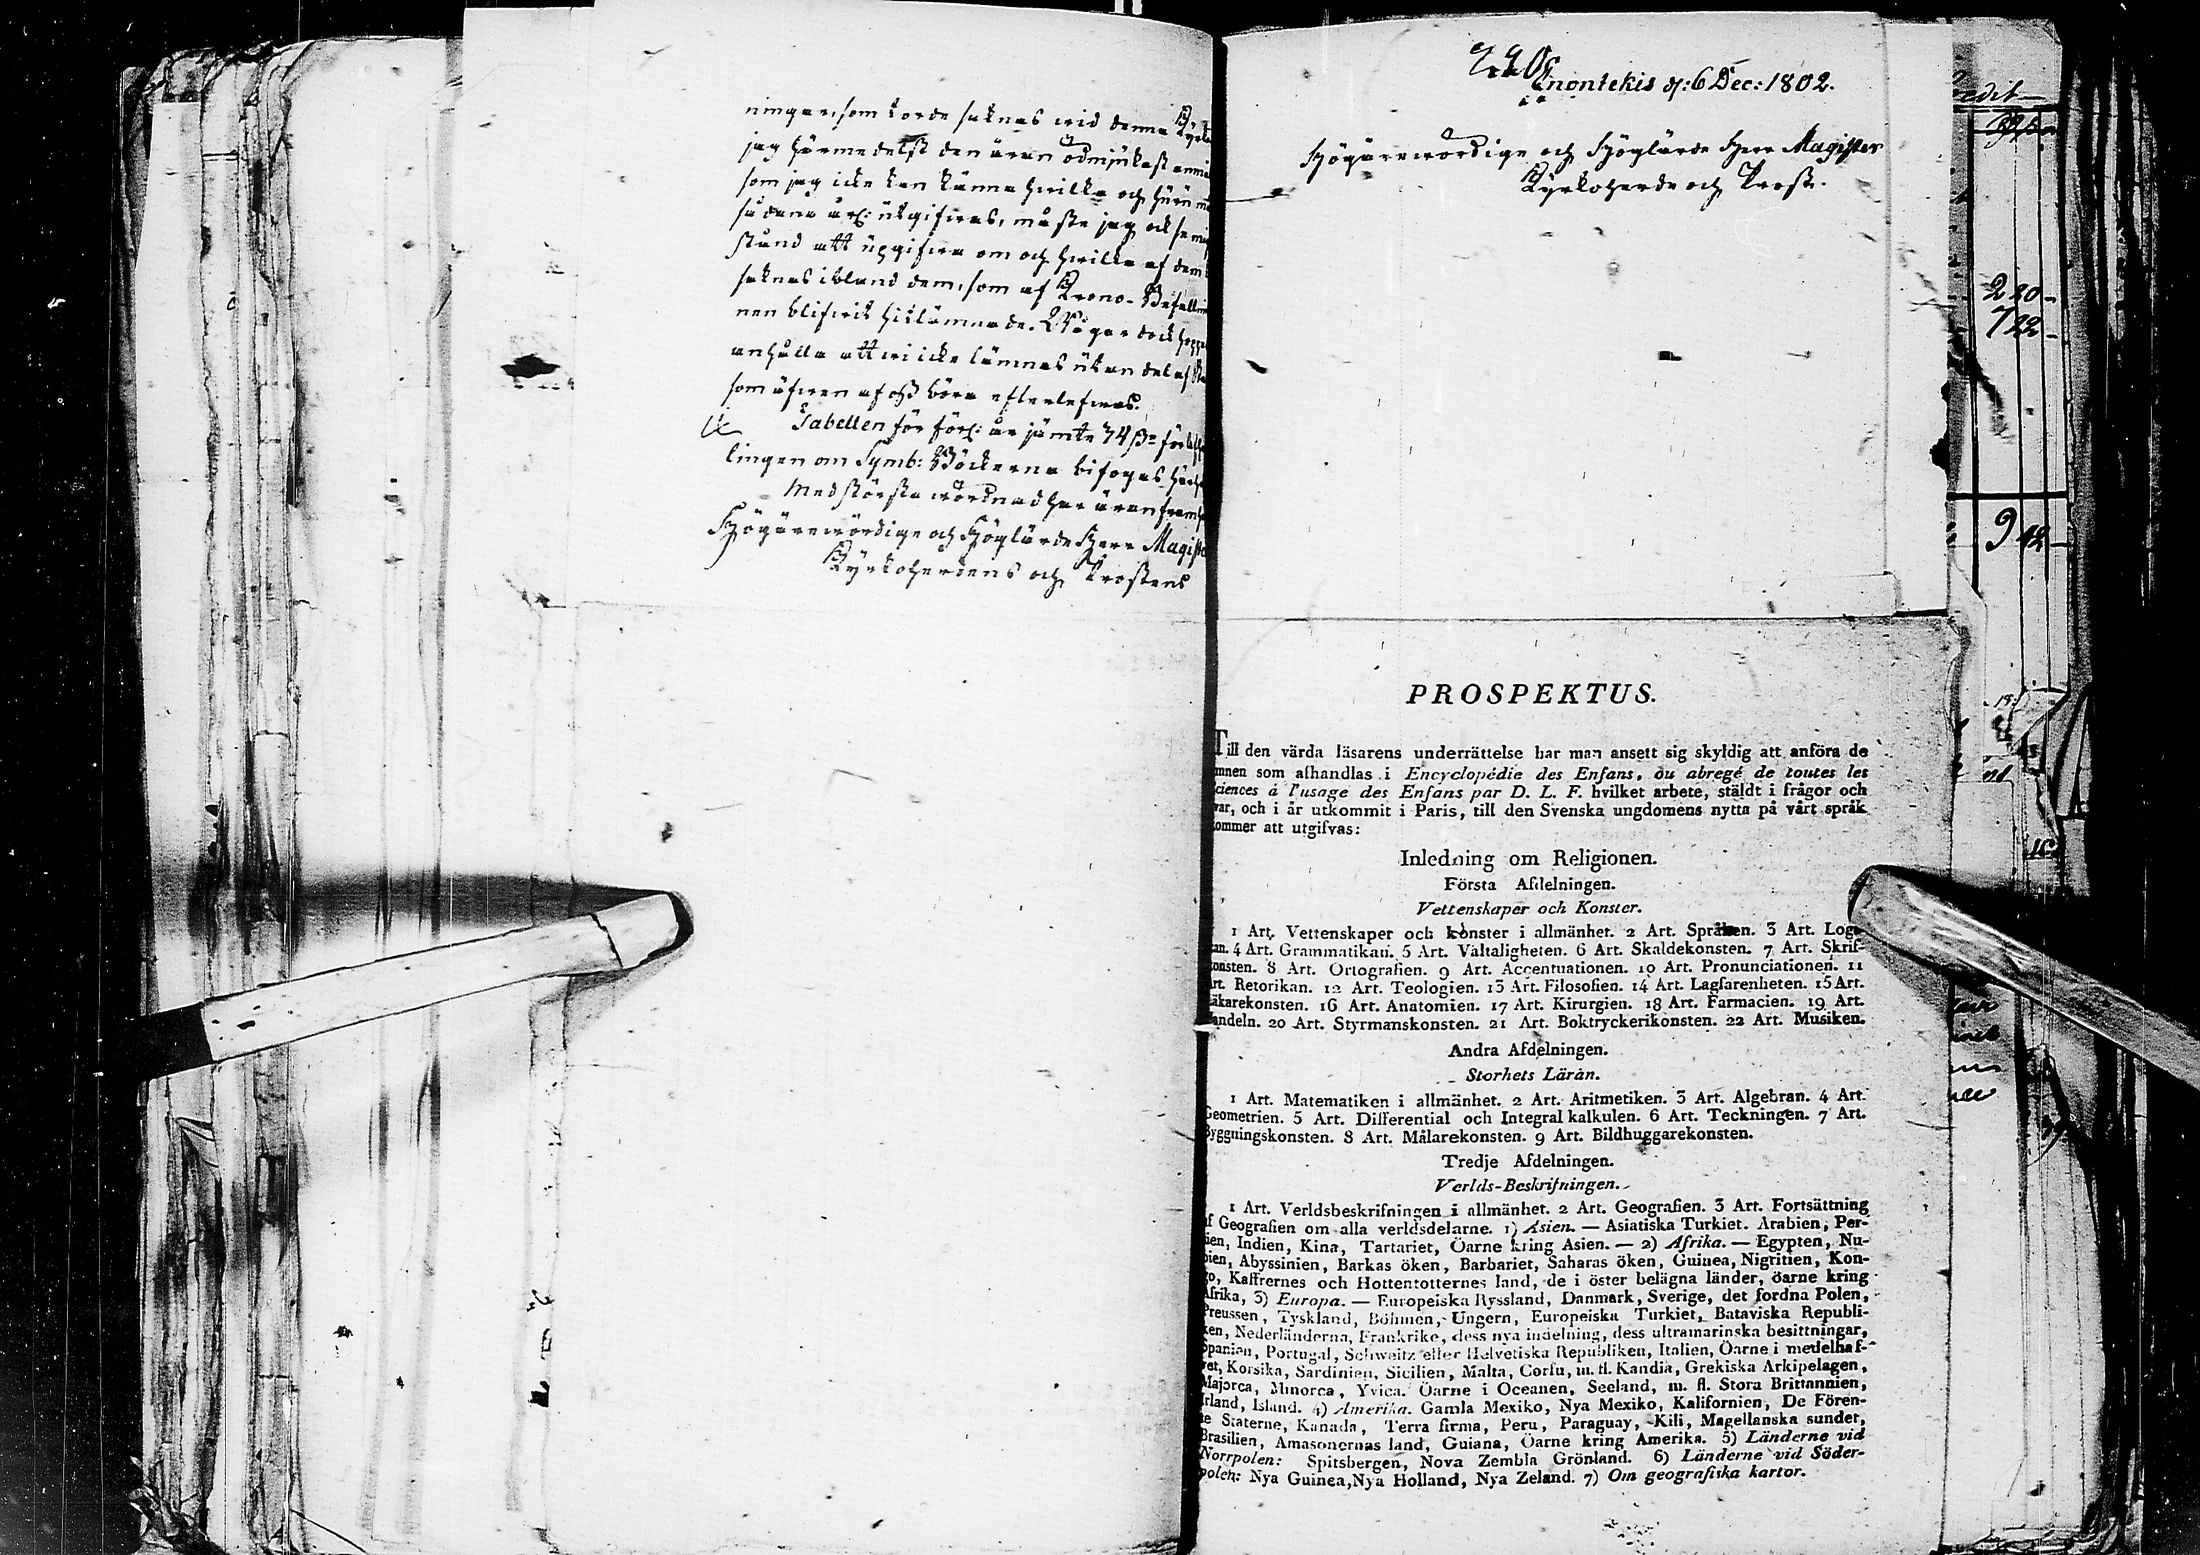 ningar, som torde saknas wid denna
jag härmedelst den äran ödmjukast
som jag icke kan känna hwilka och huru
sådana årl: utgifwas, måste jag ock
stånd att uppgifwa om och hwilka af dem
saknas ibland dem, som af Krono-
nen blifwit hitlämnade. Wågar dock
anhålla att wi icke lämnas utan del af
som äfwen af oss böra efterlefwas.
Tabellen för förl: år jämte 34 ß
lingen om Symb: Böckerna bifogas
Med största wördnad har äran
Högärewördige och Höglärde Herr
Kyrkoherdens och Prostens
220.
Enontekis d: 6 Dec: 1802.
Högärewördige och Höglärde Herr Magister
Kyrkoherde och Prost.
220-
722-
942-
PROSPEKTUS.
Till den värda läsarens underrättelse har man ansett sig skyldig att anföra de
mnen som afhandlas i Encyclopédie des Enfans, ou abregé de toutes les
ciences à l'usage des Enfans par D. L. F. hvilket arbete, stäldt i frågor och
var, och i år utkommit i Paris, till den Svenska ungdomens nytta på vårt språk
kommer att utgifvas:
Inledning om Religionen.
Första Afdelningen.
Vettenskaper och Konster.
1 Art. Vettenskaper och konster i allmänhet. 2 Art. Språken. 3 Art. Logi-
kan. 4 Art. Grammatikan. 5 Art. Vältaligheten. 6 Art. Skaldekonsten. 7 Art. Skrif-
konsten. 8 Art. Ortografien. 9 Art. Accentuationen. 10 Art. Pronunciationen. 11
Art. Retorikan. 12 Art. Teologien. 13 Art. Filosofien. 14 Art. Lagfarenheten. 15 Art.
Läkarekonsten. 16 Art. Anatomien. 17 Art. Kirurgien. 18 Art. Farmacien. 19 Art.
Handeln. 20 Art. Styrmanskonsten. 21 Art. Boktryckerikonsten. 22 Art. Musiken.
Andra Afdelningen.
Storhets Läran.
1 Art. Matematiken i allmänhet. 2 Art. Aritmetiken. 3 Art. Algebran. 4 Art.
Geometrien. 5 Art. Differential och Integral kalkulen. 6 Art. Teckningen. 7 Art.
Byggningskonsten. 8 Art. Målarekonsten. 9 Art. Bildhuggarekonsten.
Tredje Afdelningen.
Verlds-Beskrifningen.
1 Art. Verldsbeskrifningen i allmänhet. 2 Art. Geografien. 3 Art. Fortsättning
af Geografien om alla verldsdelarne. 1) Asien. — Asiatiska Turkiet. Arabien, Per-
sien, Indien, Kina, Tartariet, Öarne kring Asien. — 2) Afrika. — Egypten, Nu-
bien, Abyssinien, Barkas öken, Barbariet, Saharas öken, Guinea, Nigritien, Kon-
go, Kaffrernes och Hottentotternes land, de i öster belägna länder, öarne kring
Afrika, 3) Europa. — Europeiska Ryssland, Danmark, Sverige, det fordna Polen,
Preussen, Tyskland, Böhmen, Ungern, Europeiska Turkiet, Bataviska Republi-
ken, Nederländerna, Frankrike, dess nya indelning, dess ultramarinska besittningar,
Spanien, Portugal, Schweitz eller Helvetiska Republiken, Italien, Öarne i medelhaf-
vet, Korsika, Sardinien, Sicilien, Malta, Corfu, m. fl. Kandia, Grekiska Arkipelagen,
Majorca, Minorca, Yvica. Öarne i Oceanen, Seeland, m. fl. Stora Brittannien,
Irland, Island. 4) Amerika. Gamla Mexiko, Nya Mexiko, Kalifornien, De Fören-
te Staterne, Kanada, Terra firma, Peru, Paraguay, Kili, Magellanska sundet,
Brasilien, Amasonernas land, Guiana, Öarne kring Amerika. 5) Länderne vid
Norrpolen: Spitsbergen, Nova Zembla Grönland. 6) Länderne vid Söder-
polen: Nya Guinea, Nya Holland, Nya Zeland. 7) Om geografiska kartor.